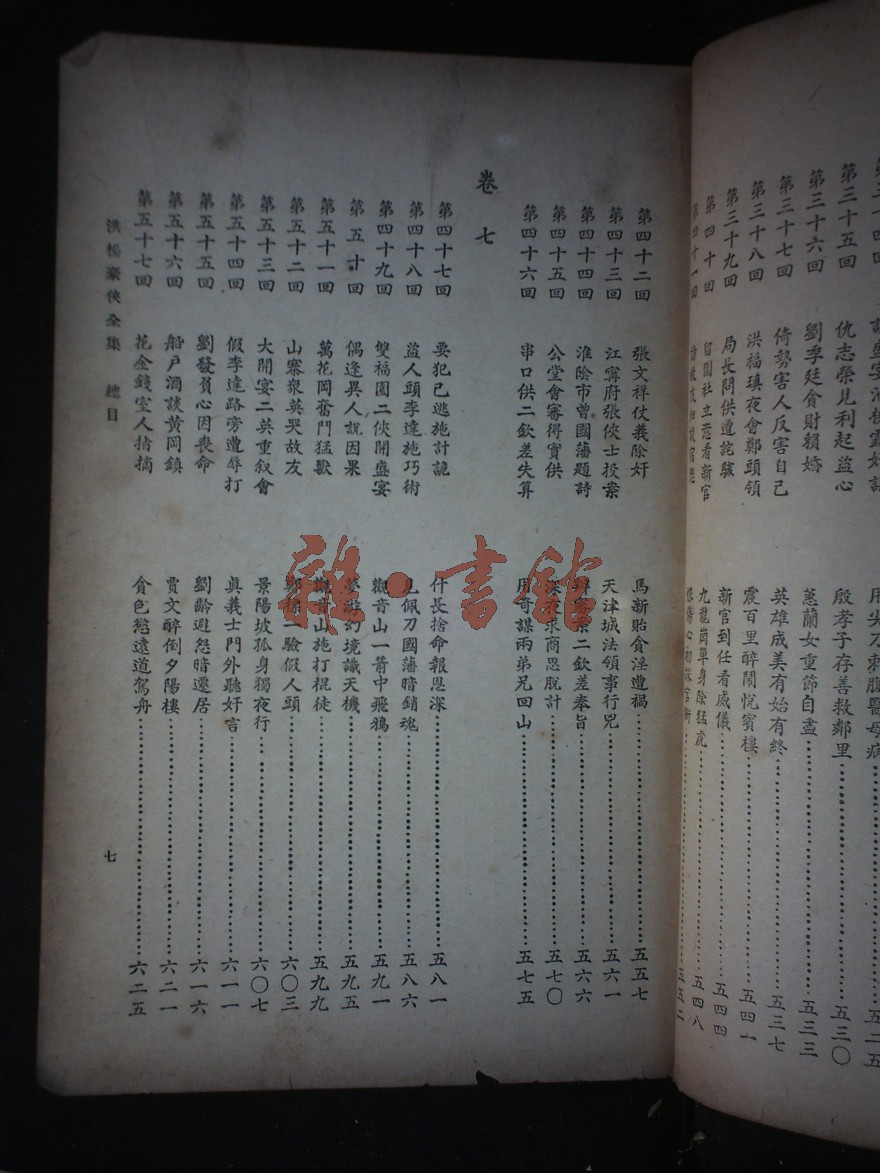 第三十五回 仇志榮見利起盜心 殷孝子存善救鄰里 五三〇
第三十六回 劉季廷貪財賴婚 蕙蘭女重節自盡 五三三
第三十七回 倚勢害人反害自己 英雄成美有始有終 五三七
第三十八回 洪福瑱夜會鄭頭領 震百里醉鬧悅賓樓 五四一
第三十九回 局長問供遭詫駭 新官到任看威儀 五四四
第四十回 留園社立悲看新官 九龍崗單身除猛虎 五四八
第四十一回 五五二
第四十二回 張文祥仗義除奸 馬新貽貪淫遭禍 五五七
第四十三回 江寧府張俠士投案 天津城法領事行兇 五六一
第四十四回 淮陰市曾國藩題詩 二欽差奉旨 五六六
第四十五回 公堂會審得實供 深夜求商思脫計 五七〇
第四十六回 串口供二欽差失算 用奇謀兩弟兄回山 五七五
卷七
第四十七回 要犯已逃施計詭 什長捨命報恩深 五八一
第四十八回 盜人頭李達施巧術 見佩刀國藩暗銷魂 五八六
第四十九回 雙福園二俠開盛宴 觀音山一箭中飛鴉 五九一
第五十回 偶逢異人說因果 夢遊幻境識天機 五九五
第五十一回 萬花岡奮鬥猛獸 觀音山施打棍徒 五九九
第五十二回 山寨衆英哭故友 驗假人頭 六〇三
第五十三回 大開宴二英重叙會 景陽坡孤身獨夜行 六〇七
第五十四回 假李達路旁遭辱打 眞義士門外聽奸言 六一一
第五十五回 劉發負心因喪命 劉齡避怨暗遷居 六一六
第五十六回 船戶酒談黃岡鎮 賈文醉倒夕陽樓 六二一
第五十七回 花金錢室人指摘 貪色慾遠道駕舟 六二五
洪楊豪俠全集 總目
七
雜·書館